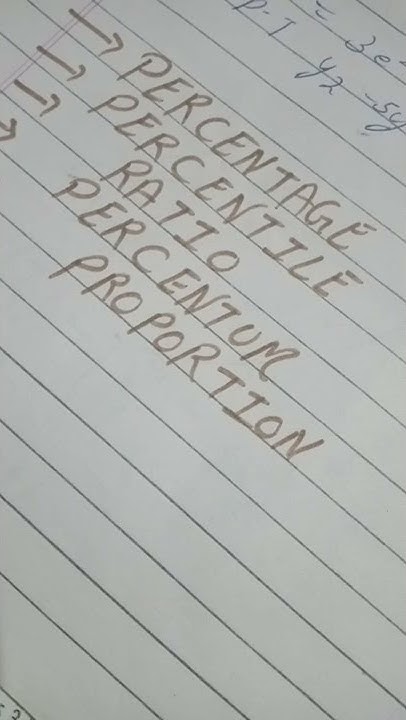 P.T y2 -5y
→ PERCENTAGE
→ PERCENTILE
→ RATIO
→ PERCENTUM
PROPORTION